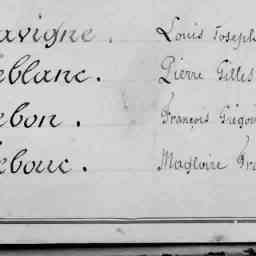 avigne. Louis Joseph
eblanc. Pierre Gilles
ebon. François Grégoi
ebouc. Magloire Fra